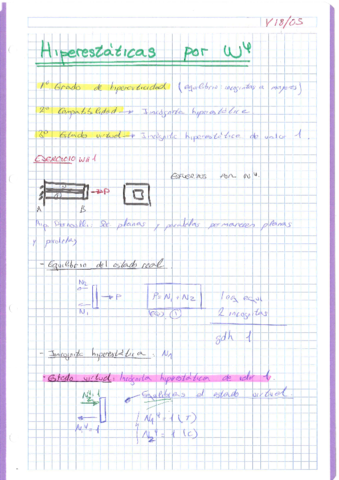 V 18/03
Hiperestáticas por Wᵠ
1º Grado de hiperestaticidad (equilibrio incógnitas a mayores)
2º Compatibilidad → Incógnita hiperestática
3º Estado virtual → Incógnita hiperestática de valor 1.
EJERCICIO WN1
ESFUERZOS POR Nᵠ
P
A B
Hip. Bernoulli: Sec planas y paralelas permanecen planas
y paralelas
- Equilibrio del estado real.
N2
P
N1
P = N1 + N2
Ec ①
1 ec equi
2 incógnitas
gdh 1
- Incógnita hiperestática: N1
- Estado virtual: Incógnita hiperestática de valor 1.
N2ᵠ = 1
Nᵠ = 1
→ Equilibrio el estado virtual
N1ᵠ = 1 (T)
N2ᵠ = 1 (C)